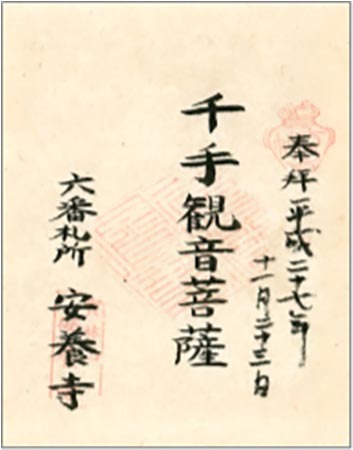 奉拝 平成二十七年
十一月二十三日
千手観音菩薩
六番札所 安養寺